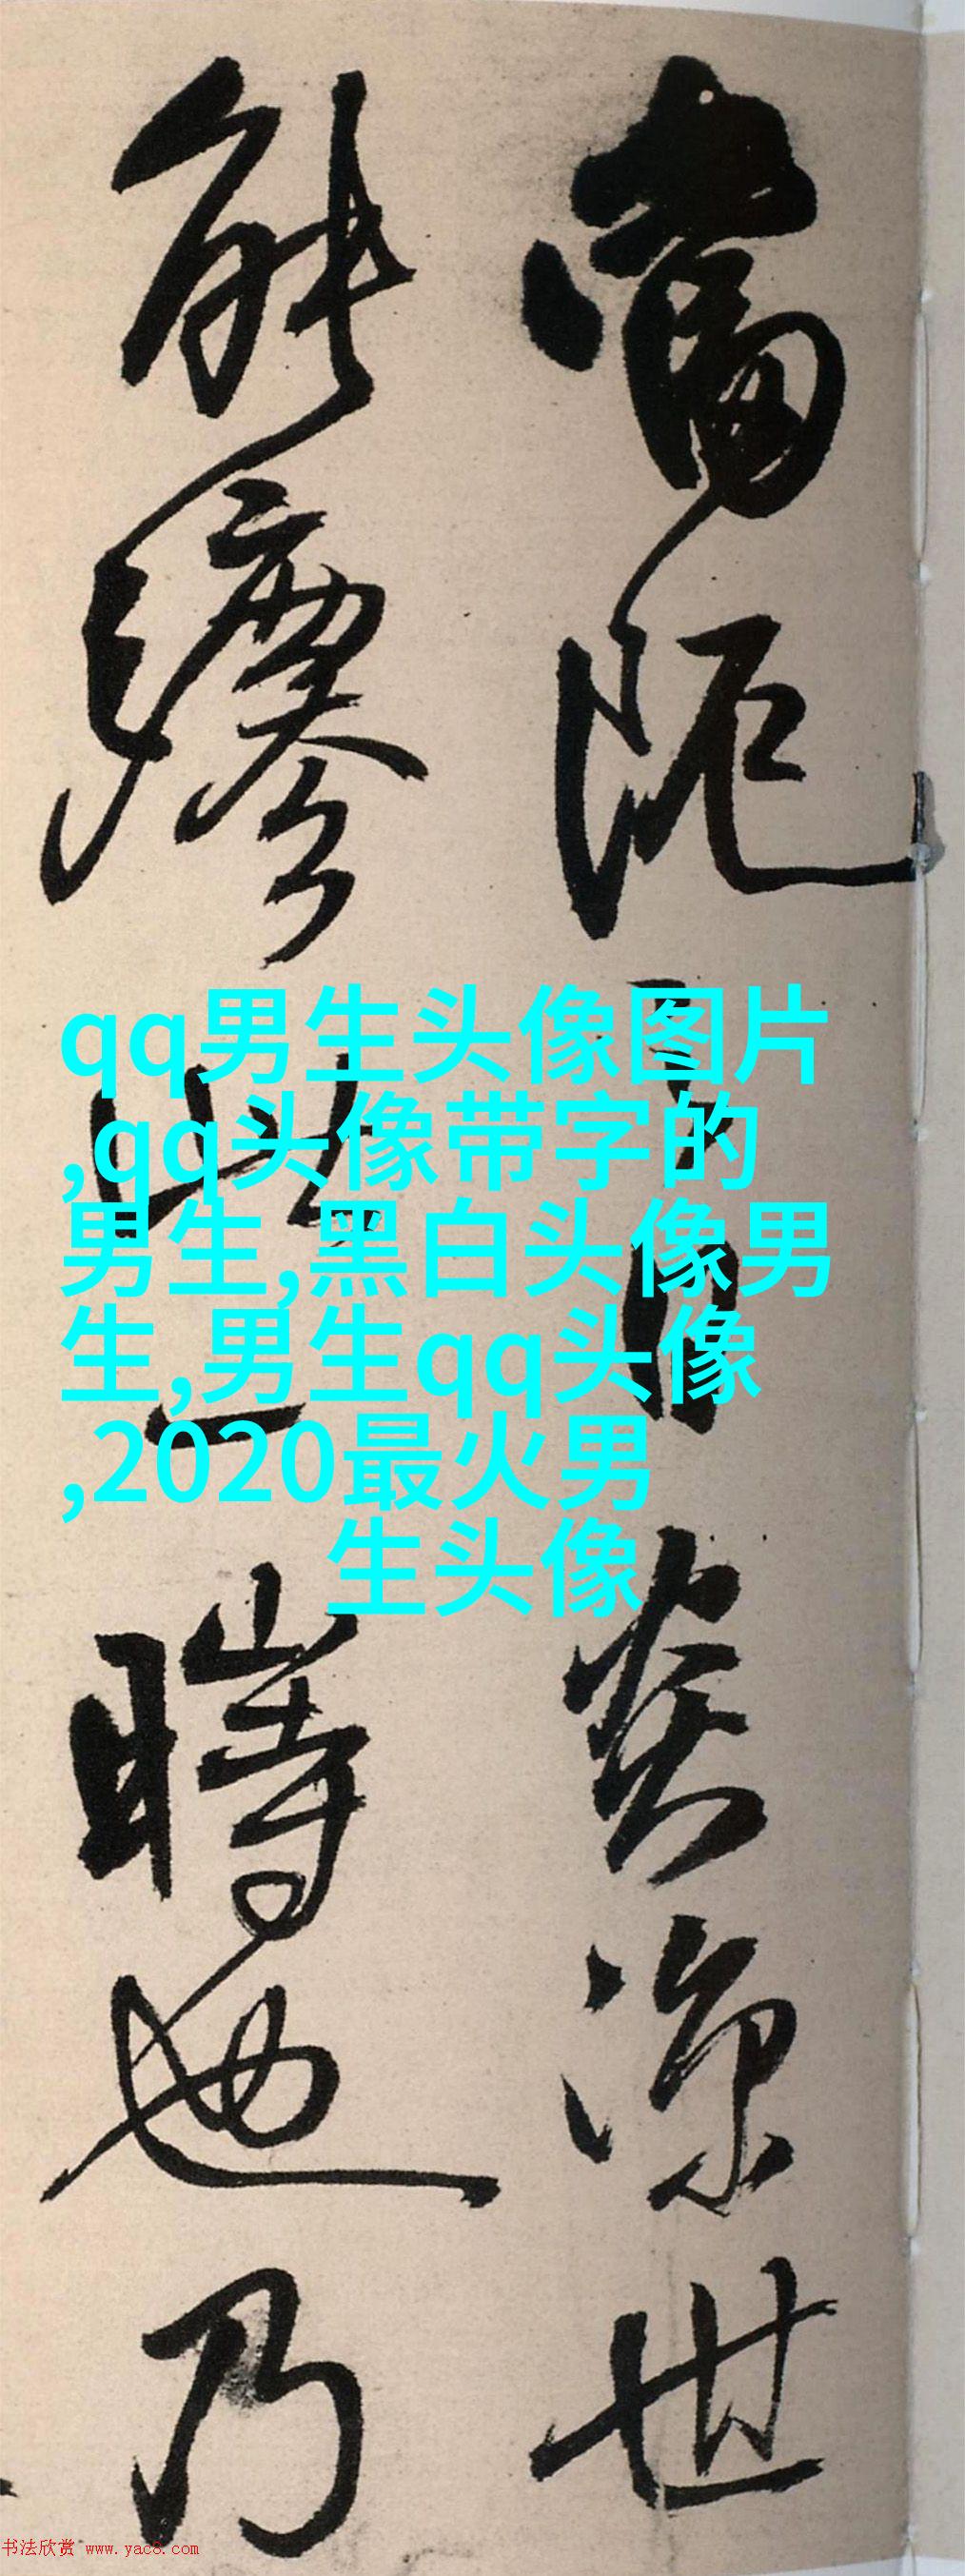 當阨
炎涼世
能繆
一時也乃
qq男生头像图片
,qq头像带字的
男生,黑白头像男
生,男生qq头像
,2020最火男
生头像
书法欣赏 www.yac8.com